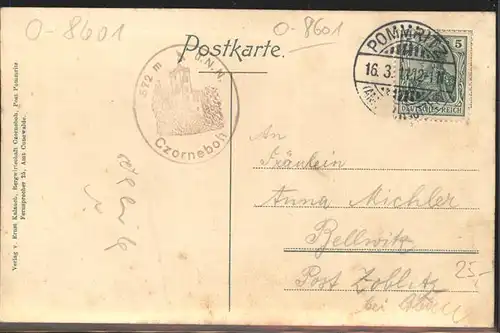 O-8601
O-8601
Postkarte.
572 m ü. N. N.
Czorneboh
POMMRITZ
16. 3.
5
DEUTSCHES REICH
An
Fräulein
Anna Michler
Bellwitz
Post Zoblitz
bei
25,-
Verlag v. Ernst Bergwirtschaft Czorneboh, Post Pommritz
Fernsprecher 25, Amt Cunewalde.